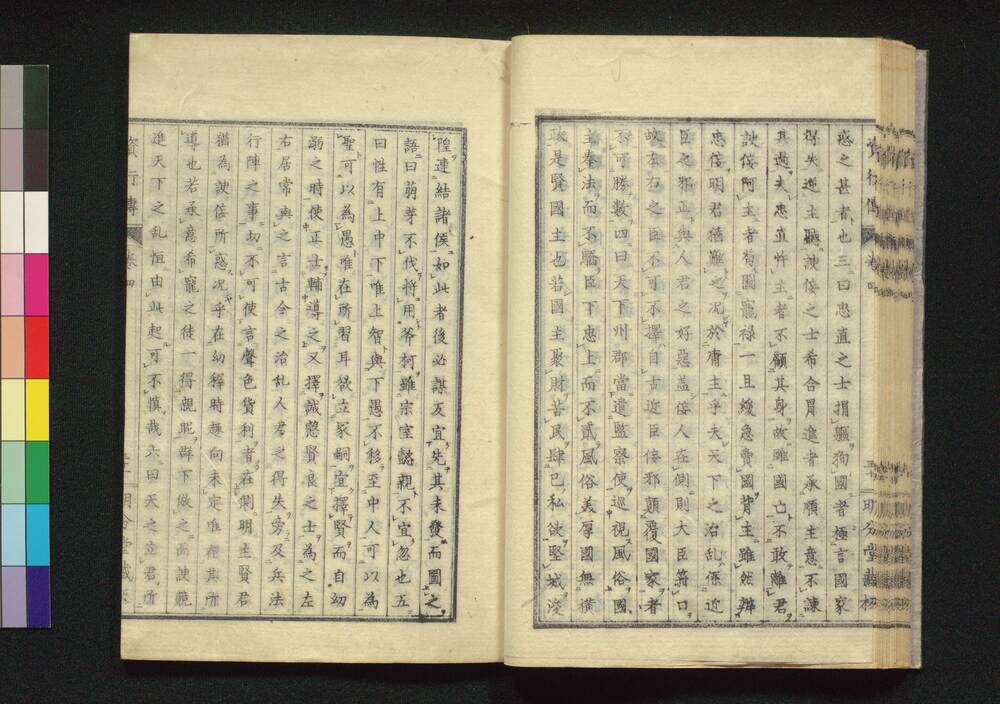 惑之甚者也三曰忠直之士捐軀狥國者極言國家
得失逆主聽諛佞之士希合冒進者承順主意不諫
其過夫忠直忤主者不顧其身故雖國亡不敢離君
諛佞阿主者苟圖寵祿一旦緩急賣國背主雖然辨
忠佞明君猶難之况於庸主乎夫天下之治乱係近
臣之邪正與人君之好惡盖佞人在側則大臣箝口
故左右之臣不可不擇自古近臣佞邪顛覆國家者
不可勝數四曰天下州郡當遣監察使巡視風俗國
主奉法而不驕臣下忠上而不貳風俗美厚國無横
政是賢國主也若國主聚財苦民肆己私欲堅城浚
隍連結諸侯如此者後必謀友宜先其未發而圖之
語曰萌芽不伐將用斧柯雖宗室懿親不宜忽也五
曰性有上中下唯上智與下愚不移至中人可以為
聖可以為愚唯在所習耳欲立冢嗣宜擇賢而自幼
溺之時使正士輔導之又擇誠慤賢良之士為之左
右居常典之言古今之治乱人君之得失旁及兵法
行陣之事切不可使言聲色貨利者在側明主賢君
猶為諛佞所惑况乎在幼稺時趣向未定唯在其所
導也若承意希寵之徒一得親眤群下倣之而諛範
進天下之乱恒由此起可不慎哉六曰天之立君所
資行傳 卷四